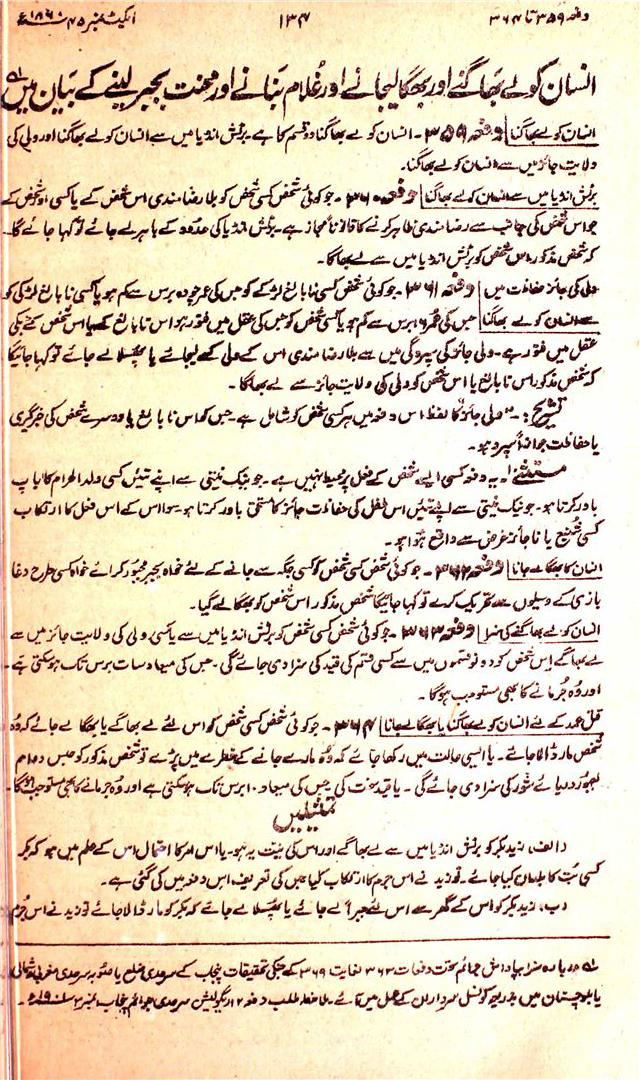 دفعہ ۳۵۹ تا ۳۶۴
۱۳۴
ایکٹ نمبر ۴۵ ۱۸۶۰ء
انسان کو لے بھاگنے اور بھگا لیجانے اور غلام بنانے اور محنت بجبر لینے کے بیان میں
انسان کو لے بھاگنا دفعہ ۳۵۹ ۔ انسان کو لے بھاگنا دو قسم کا ہے ۔ برٹش انڈیا میں سے انسان کو لے بھاگنا اور ولی کی
ولایت جائز میں سے انسان کو لے بھاگنا۔
برٹش انڈیا میں سے انسان کو لے بھاگنا دفعہ ۳۶۰ ۔ جو کوئی شخص کسی شخص کو بلا رضامندی اس شخص کے یا کسی اور شخص کے
جو اس شخص کی جانب سے رضامندی ظاہر کرنے کا قانوناً مجاز ہے ۔ برٹش انڈیا کی حدود کے باہر لے جائے تو کہا جائے گا۔
کہ شخص مذکور اس شخص کو برٹش انڈیا میں سے لے بھاگا۔
ولی کی جائز حفاظت میں دفعہ ۳۶۱ ۔ جو کوئی شخص کسی نابالغ لڑکے کو جس کی عمر چودہ برس سے کم ہو یا کسی نابالغ لڑکی کو
سے انسان کو لے بھاگنا جس کی عمر ۱۶ برس سے کم ہو یا کسی شخص کو جس کی عقل میں فتور ہو اس نابالغ کے یا اس شخص کے جسکی
عقل میں فتور ہے ۔ ولی جائز کی سپردگی میں سے بلا رضامندی اس کے ولی کے لیجائے یا پھسلا لے جائے تو کہا جائیگا
کہ شخص مذکور اس نابالغ یا اس شخص کو ولی کی ولایت جائز سے لے بھاگا ۔
تشریح:۔ "ولی جائز" کا لفظ اس دفعہ میں ہر کسی شخص کو شامل ہے ۔ جس کو اس نابالغ یا دوسرے شخص کی خبرگیری
یا حفاظت جوازاً سپرد ہو ۔
مستثنےٰ۔ یہ دفعہ کسی ایسے شخص کے فعل پر محیط نہیں ہے ۔ جو نیک نیتی سے اپنے تئیں کسی ولد الحرام کا باپ
باور کرتا ہو۔ جو نیک نیتی سے اپنے تئیں اس طفل کی حفاظت جائز کا مستحق باور کرتا ہو سوا اس کے اس فعل کا ارتکاب
کسی شنیع یا ناجائز غرض سے واقع ہوا ہو ۔
انسان کا بھگا لے جانا دفعہ ۳۶۲ ۔ جو کوئی شخص کسی شخص کو کسی جگہ سے جانے کے لئے خواہ بجبر مجبور کرائے خواہ کسی طرح دغا
بازی کے وسیلوں سے تحریک کرے تو کہا جائیگا شخص مذکور اس شخص کو بھگا لے گیا۔
انسان کو لے بھاگنے کی سزا دفعہ ۳۶۳ ۔ جو کوئی شخص کسی شخص کو برٹش انڈیا میں سے یا کسی ولی کی ولایت جائز میں سے
لے بھاگے اس شخص کو دونوں قسموں میں سے کسی قسم کی قید کی سزا دی جائے گی ۔ جس کی میعاد سات برس تک ہو سکتی ہے ۔
اور وہ جرمانے کا بھی مستوجب ہو گا ۔
قتل عمد کے لئے انسان کو لے بھاگنا یا بھگا لے جانا ۳۶۴ ۔ جو کوئی شخص کسی شخص کو اس لئے لے بھاگے یا بھگا لے جائے کہ وہ
شخص مار ڈالا جائے ۔ یا ایسی حالت میں رکھا جائے کہ وہ مارے جانے کے خطرے میں پڑے تو شخص مذکور کو حبس دوام
بعبور دریائے شور کی سزا دی جائے گی ۔ یا قید سخت کی جس کی میعاد ۱۰ برس تک ہو سکتی ہے اور وہ جرمانے کا بھی مستوجب ہوگا۔
تمثیلیں
(الف) زید بکر کو برٹش انڈیا میں سے لے بھاگے اور اس کی نیت یہ ہو ۔ یا اس امر کا احتمال اس کے علم میں ہو کہ بکر
کسی بت کا بلدان کیا جائے ۔ تو زید نے اس جرم کا ارتکاب کیا جس کی تعریف اس دفعہ میں کی گئی ہے ۔
(ب) زید بکر کو اس کے گھر سے اس لئے جبراً لے جائے یا پھسلا لے جائے کہ بکر کو مار ڈالا جائے تو زید نے اس جرم
دربارہ سزا بپاداش جرائم تحت دفعات ۳۶۳ لغایت ۳۶۹ کے جنکی تحقیقات پنجاب کے سرحدی ضلع یا صوبہ سرحدی مغربی شمالی
یا بلوچستان میں بذریعہ کونسل سرداران کے عمل میں آئے ۔ ملاحظہ طلب دفعہ ۱۲ ریگولیشن سرحدی جرائم پنجاب نمبر ۳ ۱۹۰۱ء ۔